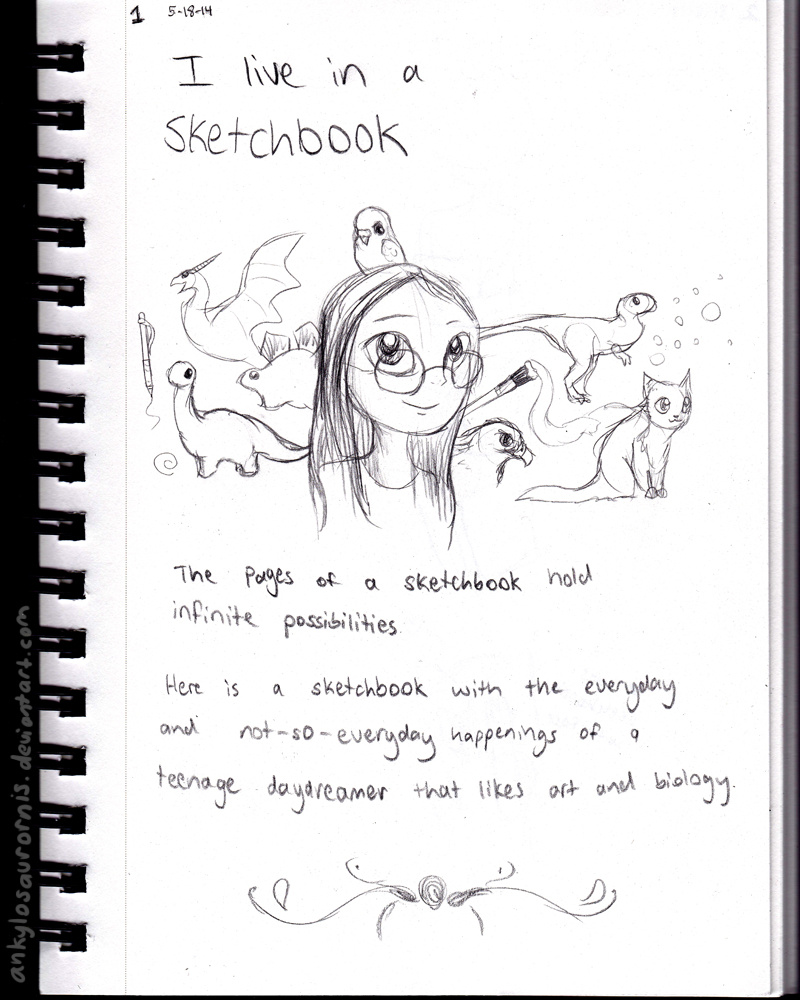 1 5-18-14
I live in a
Sketchbook
The pages of a sketchbook hold
infinite possibilities.
Here is a sketchbook with the everyday
and not-so-everyday happenings of a
teenage daydreamer that likes art and biology.
ankylosaurornis.deviantart.com